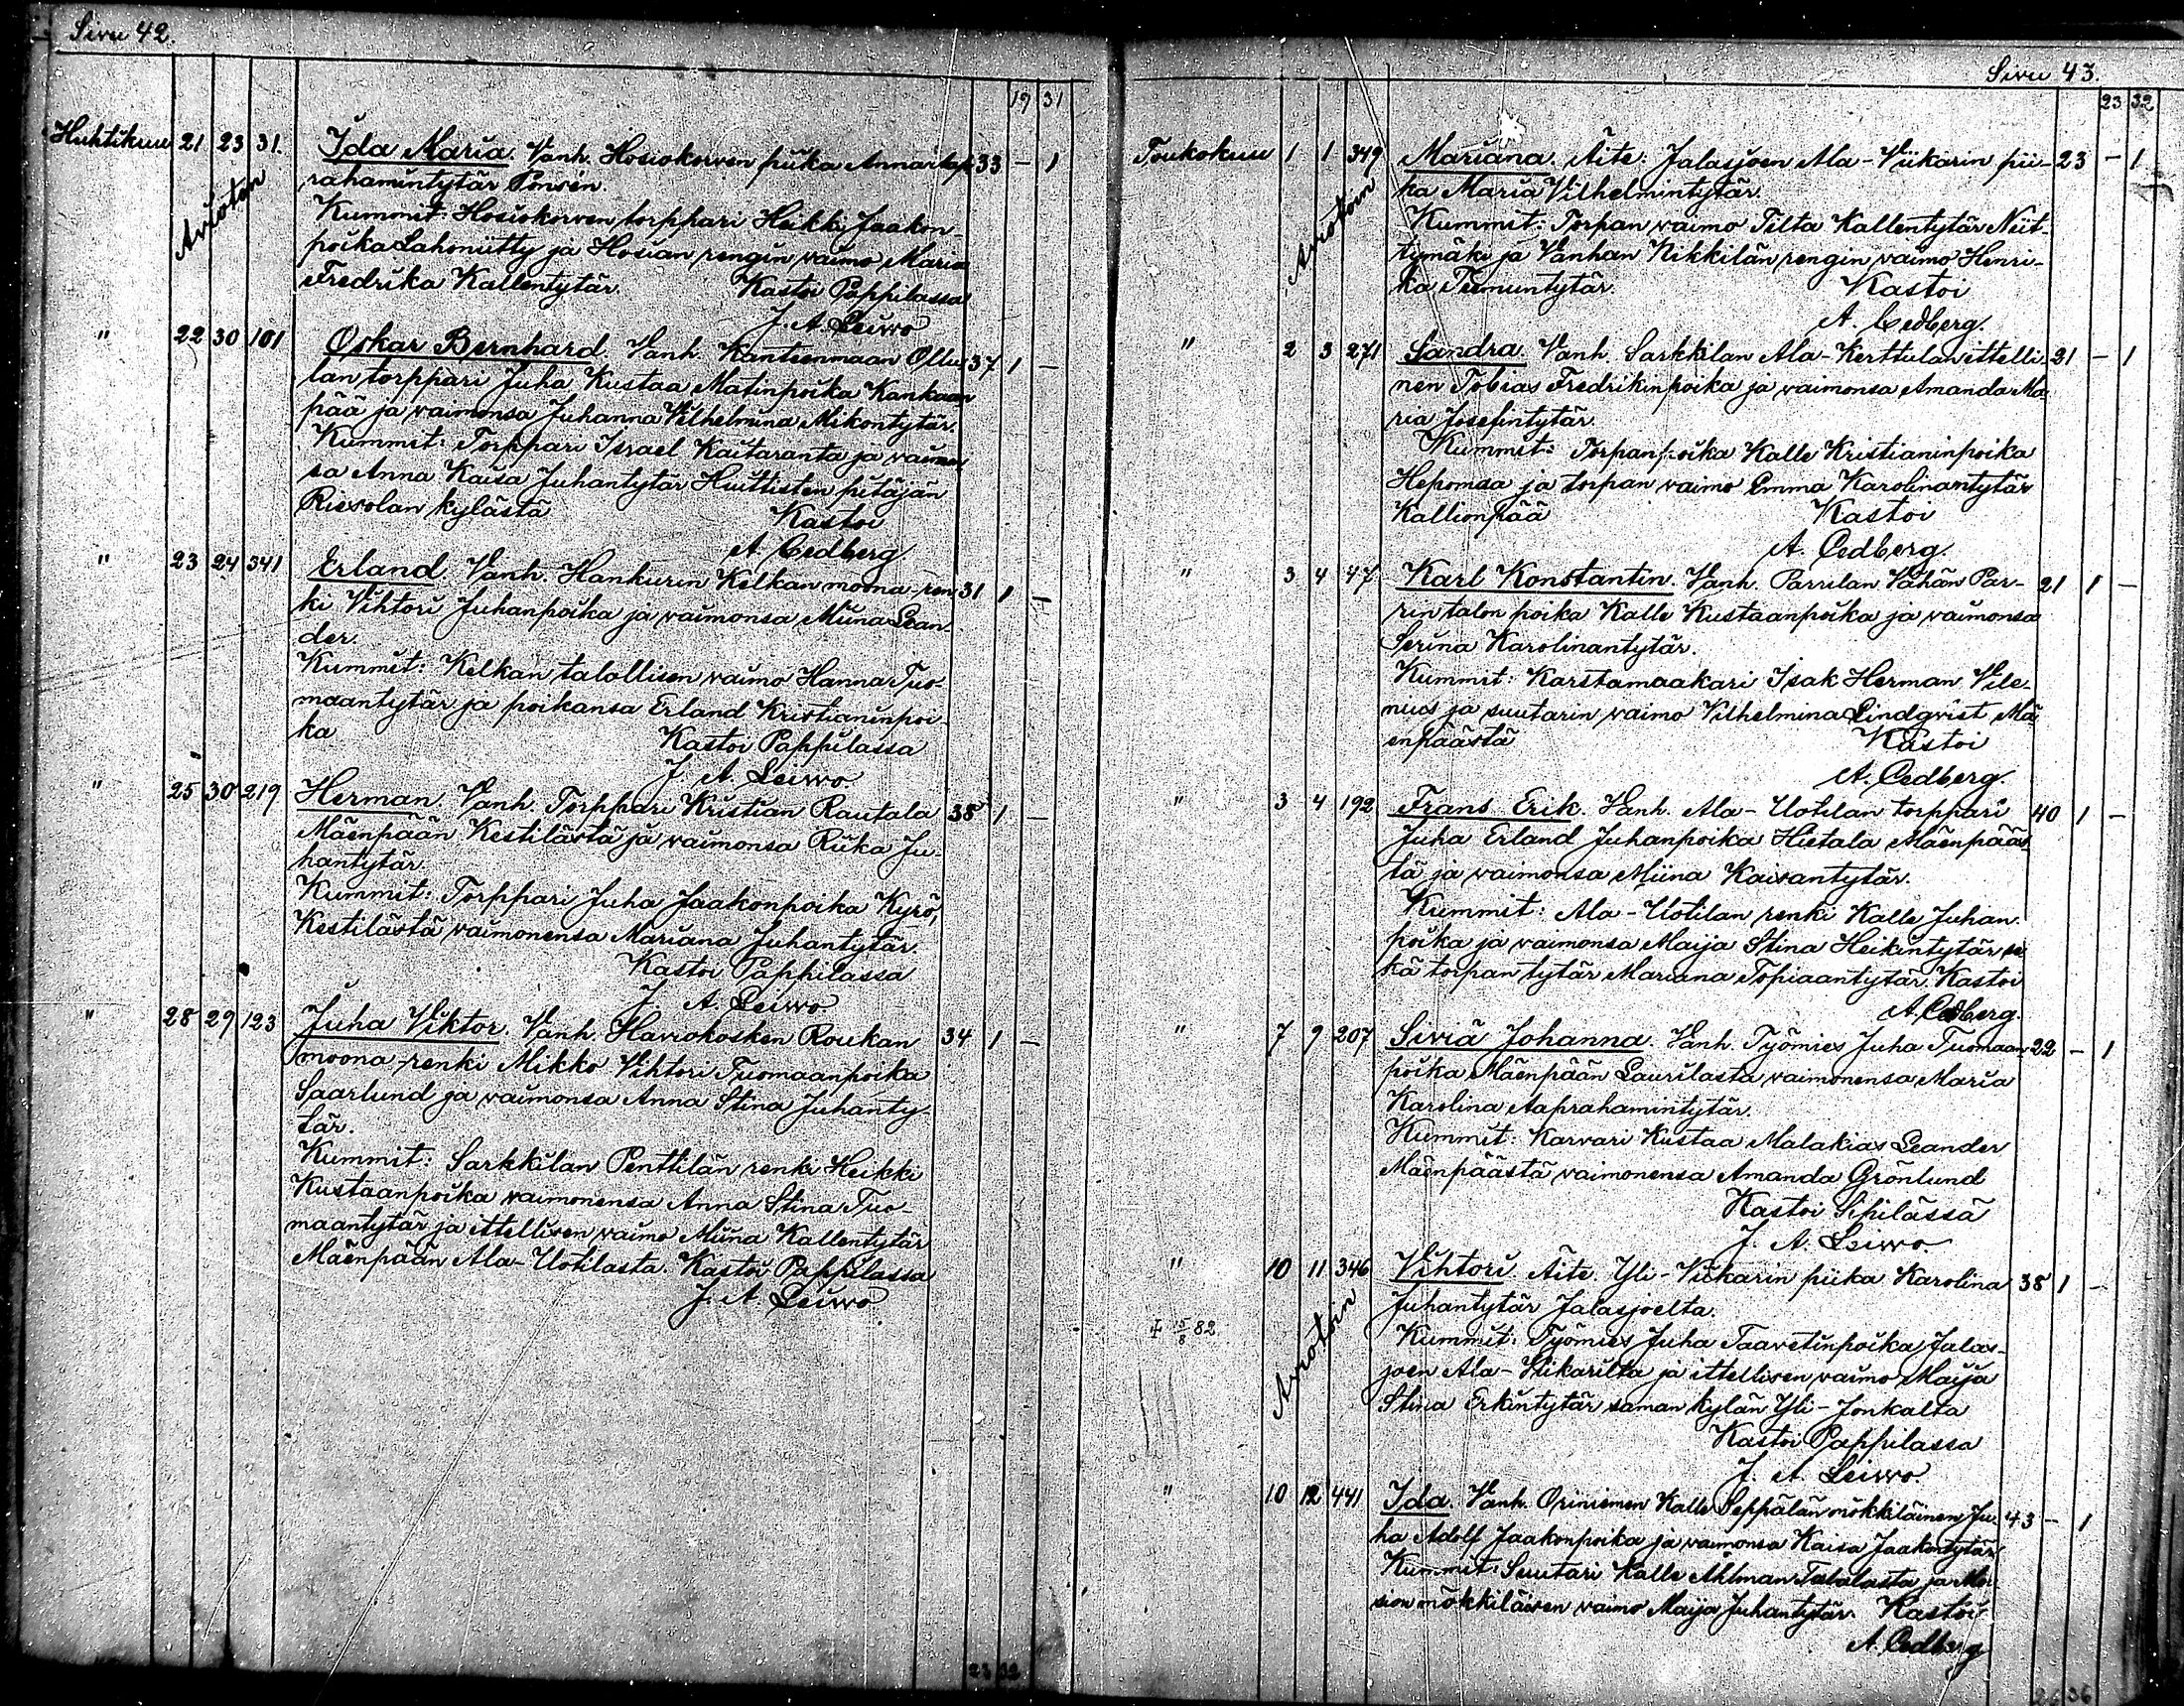 Sivu 42.
19 31
Huhtikuu 21 23 31. Ida Maria. Vanh. Hosiokorven piika Annar 33 – 1
Avioton
rahamintytär Ponsén.
Kummit: Hosiokorven torppari Heikki Jaakon-
poika Lahoniitty ja Hosian rengin vaimo Maria
Fredrika Kallentytär. Kastoi Pappilassa
J. A. Leiwo
" 22 30 101 Oskar Bernhard. Vanh. Kanteenmaan Ollu- 37 1 –
lan torppari Juha Kustaa Matinpoika Kankaan
pää ja vaimonsa Juhanna Vilhelmina Mikontytär.
Kummit: Torppari Israel Kaitaranta ja vaimon
sa Anna Kaisa Juhantytär Huittisten pitäjän
Rievolan kylästä Kastoi
A. Cedberg
" 23 24 341 Erland. Vanh. Hankurin Kelkan moona-ren 31 1 –
ki Vihtori Juhanpoika ja vaimonsa Miina Lean-
der.
Kummit: Kelkan talollisen vaimo Hanna Tuo-
maantytär ja poikansa Erland Kristianinpoi-
ka Kastoi Pappilassa
J. A. Leiwo.
" 25 30 219 Herman. Vanh. Torppari Kristian Rautala 38 1 –
Mäenpään Kestilästä ja vaimonsa Riika Ju-
hantytär.
Kummit: Torppari Juha Jaakonpoika Kyrö,
Kestilästä vaimonensa Mariana Juhantytär.
Kastoi Pappilassa
J. A. Leiwo
" 28 29 123 Juha Viktor. Vanh. Haviokosken Roukan 34 1 –
moona-renki Mikko Vihtori Tuomaanpoika
Saarlund ja vaimonsa Anna Stina Juhanty-
tär.
Kummit: Sarkkilan Penttilän renki Heikki
Kustaanpoika vaimonensa Anna Stina Tuo-
maantytär ja ittellisen vaimo Miina Kallentytär
Mäenpään Ala-Uotilasta. Kastoi Pappilassa
J. A. Leiwo
23 32
Sivu 43.
23 32
Toukokuu 1 1 349 Mariana. Äite: Jalasjoen Ala-Viikarin pii- 23 – 1
Avioton
ka Maria Vilhelmintytär.
Kummit: Torpan vaimo Tilta Kallentytär Niit-
tymäki ja Vanhan Nikkilän rengin vaimo Henri-
ka Teemuntytär. Kastoi
A. Cedberg.
" 2 3 271 Sandra. Vanh. Sarkkilan Ala-Kerttulan ittelli- 31 – 1
nen Tobias Fredrikinpoika ja vaimonsa Amanda Ma-
ria Josefintytär.
Kummit: Torpanpoika Kalle Kristianinpoika
Hepomaa ja torpan vaimo Emma Karolinantytär
Kallionpää Kastoi
A. Cedberg.
" 3 4 47 Karl Konstantin. Vanh. Parrilan Vähän Par- 21 1 –
rin talon poika Kalle Kustaanpoika ja vaimonsa
Serina Karolinantytär.
Kummit: Karstamaakari Isak Herman Vile-
nius ja suutarin vaimo Vilhelmina Lindqvist Mä
enpäästä Kastoi
A. Cedberg.
" 3 4 192 Frans Erik. Vanh. Ala-Uotilan torppari 40 1 –
Juha Erland Juhanpoika Hietala Mäenpääs-
tä ja vaimonsa Miina Kaisantytär.
Kummit: Ala-Uotilan renki Kalle Juhan-
poika ja vaimonsa Maija Stina Heikintytär se
kä torpan tytär Mariana Topiaantytär. Kastoi
A. Cedberg.
" 7 9 207 Siviä Johanna. Vanh. Työmies Juha Tuomaan- 22 – 1
poika Mäenpään Laurilasta vaimonensa Maria
Karolina Aaprahamintytär.
Kummit: Karvari Kustaa Malakias Leander
Mäenpäästä vaimonensa Amanda Grönlund
Kastoi Sipilässä
J. A. Leiwo.
" 10 11 346 Vihtori. Äite. Yli-Viikarin piika Karolina 38 1 –
Avioton
Juhantytär Jalasjoelta.
‡ 15/8 82
Kummit: Työmies Juha Taavetinpoika Jalas-
joen Ala-Viikarilta ja ittellisen vaimo Maija
Stina Erkintytär saman kylän Yli-Jonkalta
Kastoi Pappilassa
J. A. Leiwo.
" 10 12 441 Ida. Vanh. Oriniemen Kalle Seppälän mökkiläinen Ju- 43 – 1
ha Adolf Jaakonpoika ja vaimonsa Kaisa Jaakontytär.
Kummit: Suutari Kalle Ahlman Talalasta ja
sion mökkiläisen vaimo Maija Juhantytär. Kastoi
A. Cedberg